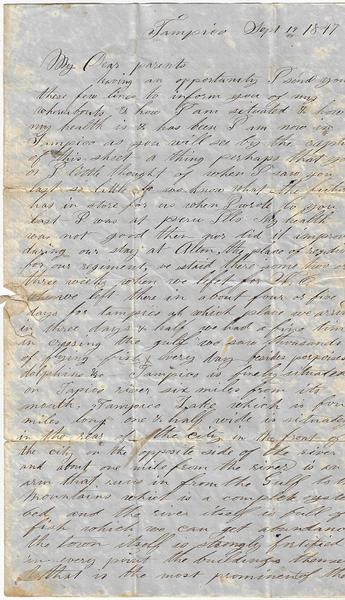 Tampico Sept 12 1847
My Dear parents
having an opportunity I send you
these few lines to inform you of my
whereabouts & how I am situated & how
my health is & has been I am now in
Tampico as you will see by the caption
of this sheet a thing perhaps that you
or I little thought of when I saw you
last so little do we know what the future
has in store for us when I wrote to you
last I was at peru Ills My health
was not good then nor did it improve
during our stay at Alton, the place of
for our regiment, we staid there some two or
three weeks when we left for
we left there in about four or five
days for tampico at which place we arrived
in three days & half we had a fine time
in crossing the gulf we saw thousands
of flying fish & every day besides porpoises
dolphins &c Tampico is finely situated
on Tapico river six miles from its
mouth. Tampico Lake which is four
miles long one & half wide is situated
in the rear of the city in the front of
the city on the opposite side of the river
and about one mile from the river is an
arm that runs in from the Gulf to the
mountains which is a complete oyster
bed and the river itself is full of
fish which we can get abundance
the town itself is strongly fortified
in every point the buildings
what is the most prominent of the